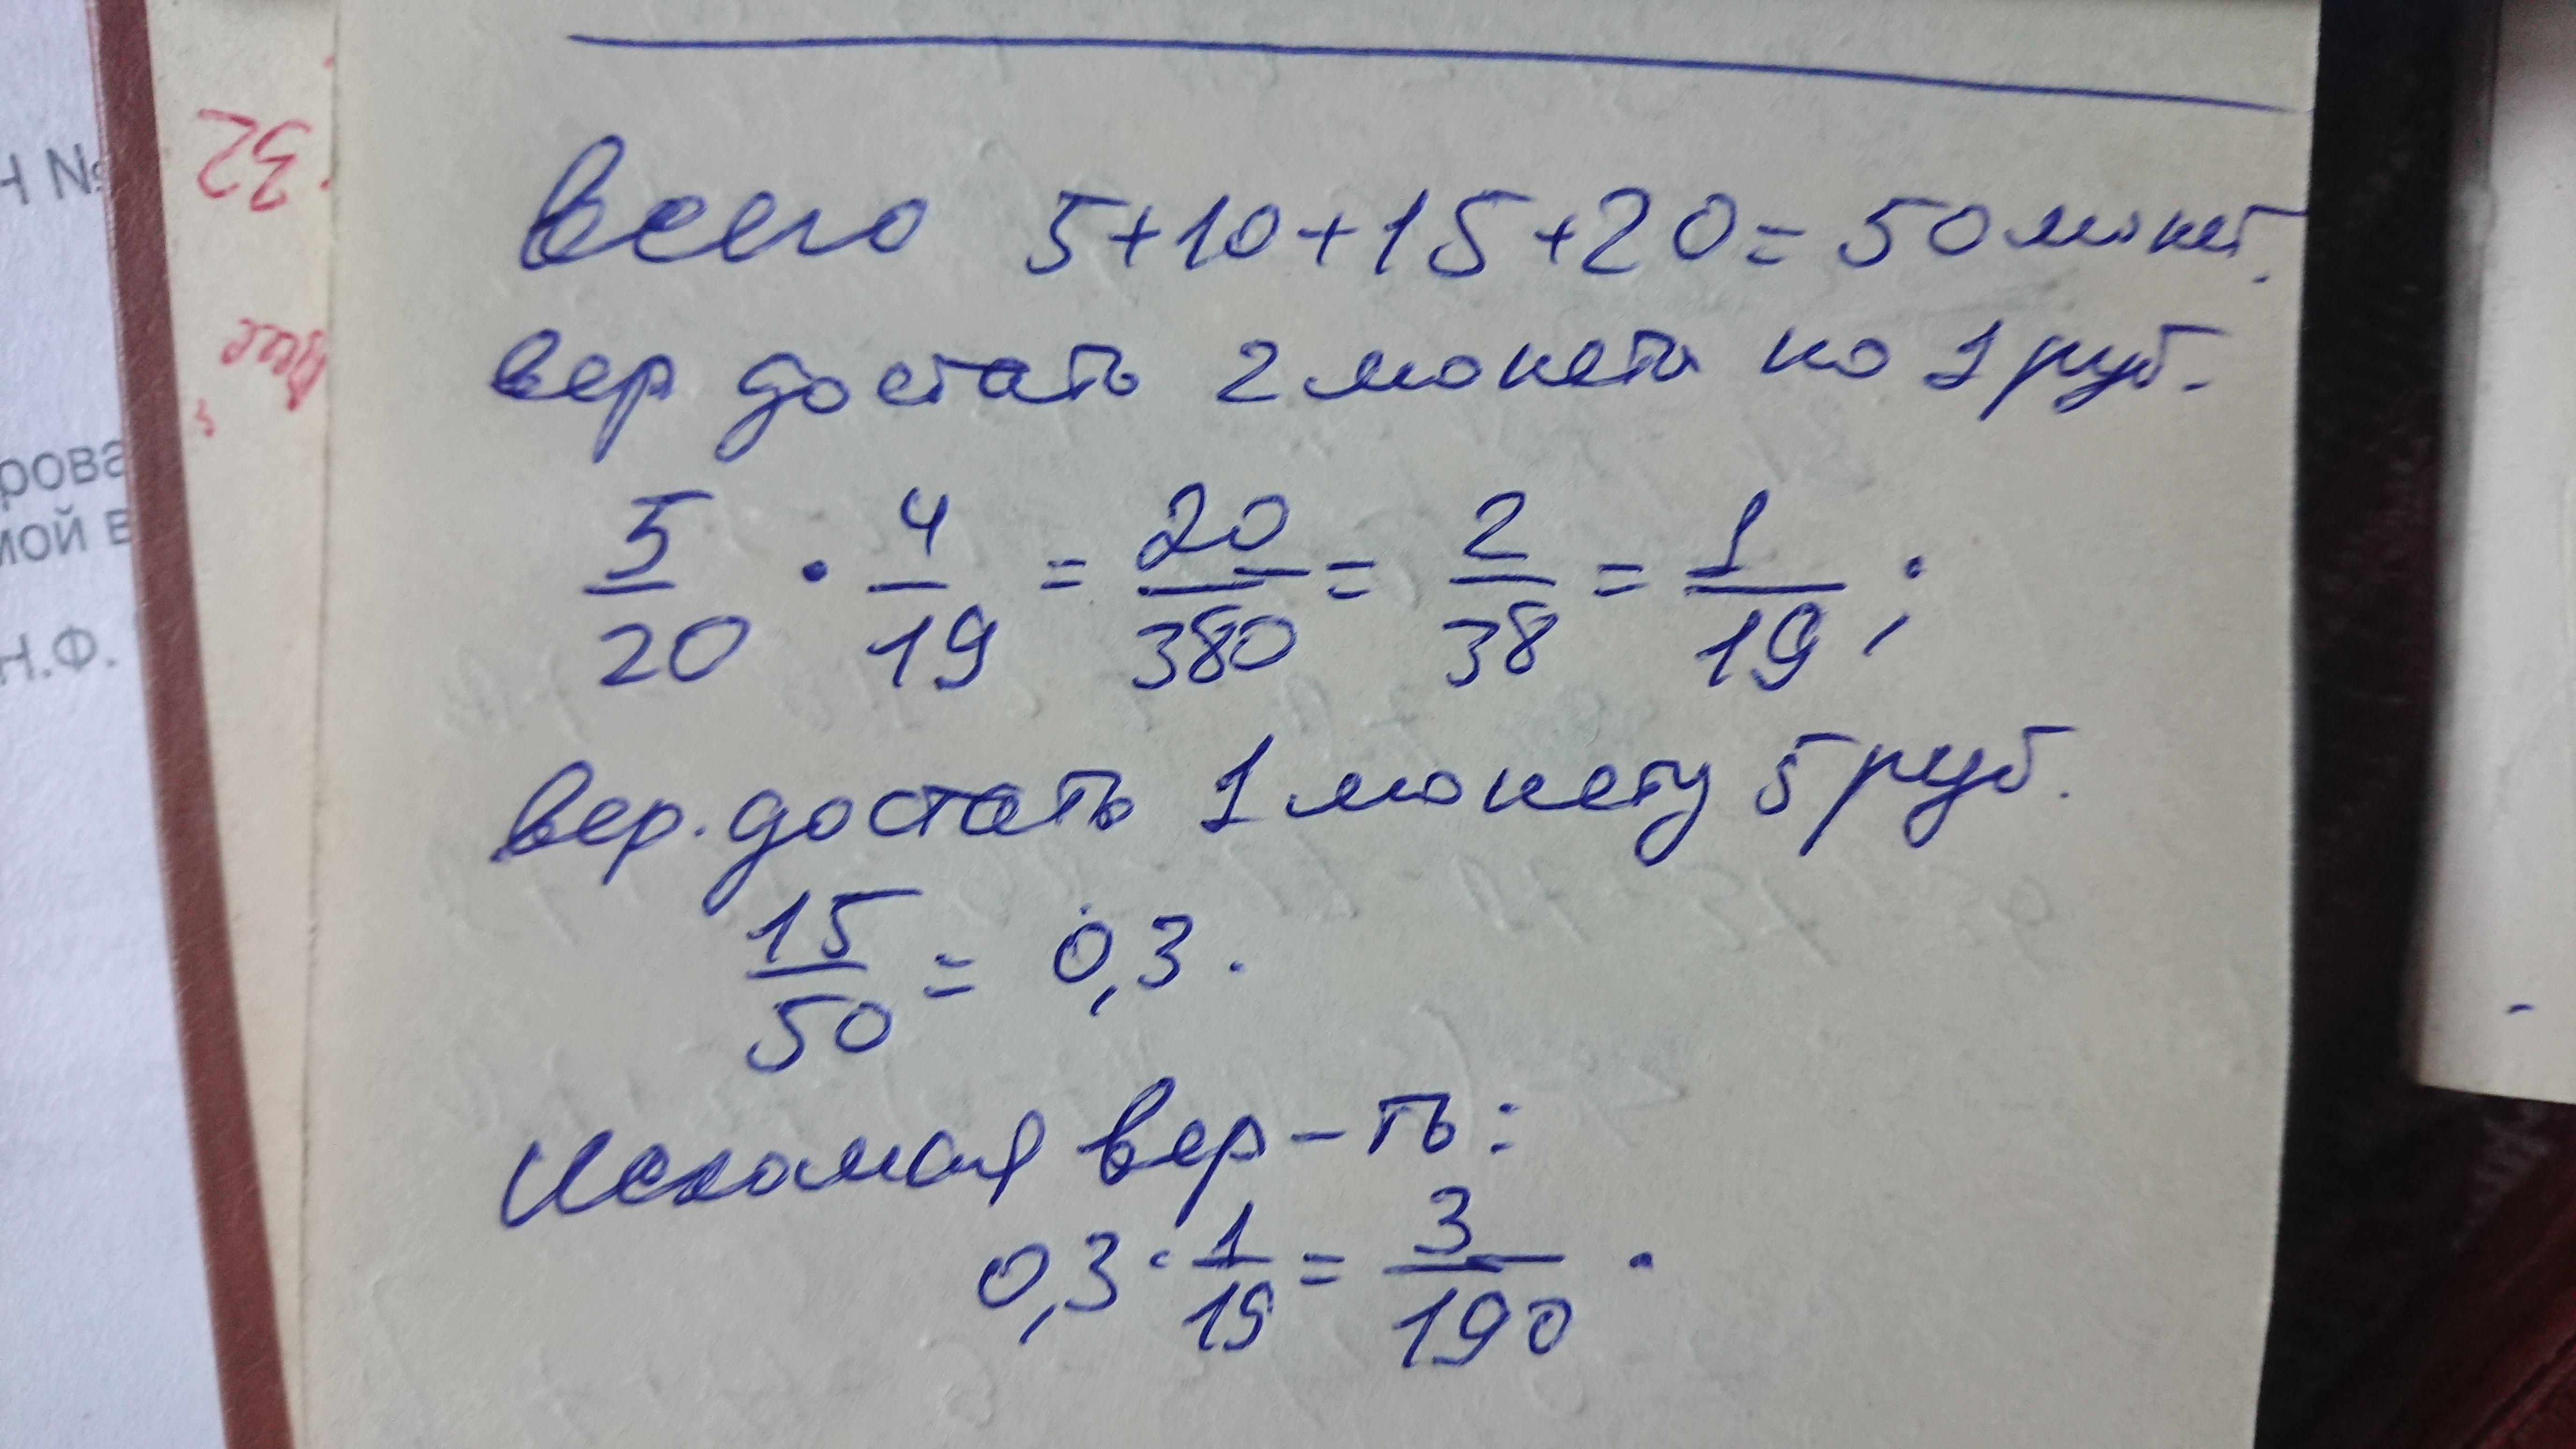 Всего 5+10+15+20=50 монет.
вер достать 2 монеты по 1 руб.
5/20 · 4/19 = 20/380 = 2/38 = 1/19 ;
вер. достать 1 монету 5 руб.
15/50 = 0,3.
Искомая вер-ть:
0,3 · 1/19 = 3/190 .
Н №
32
рова
мой в
Н.Ф.